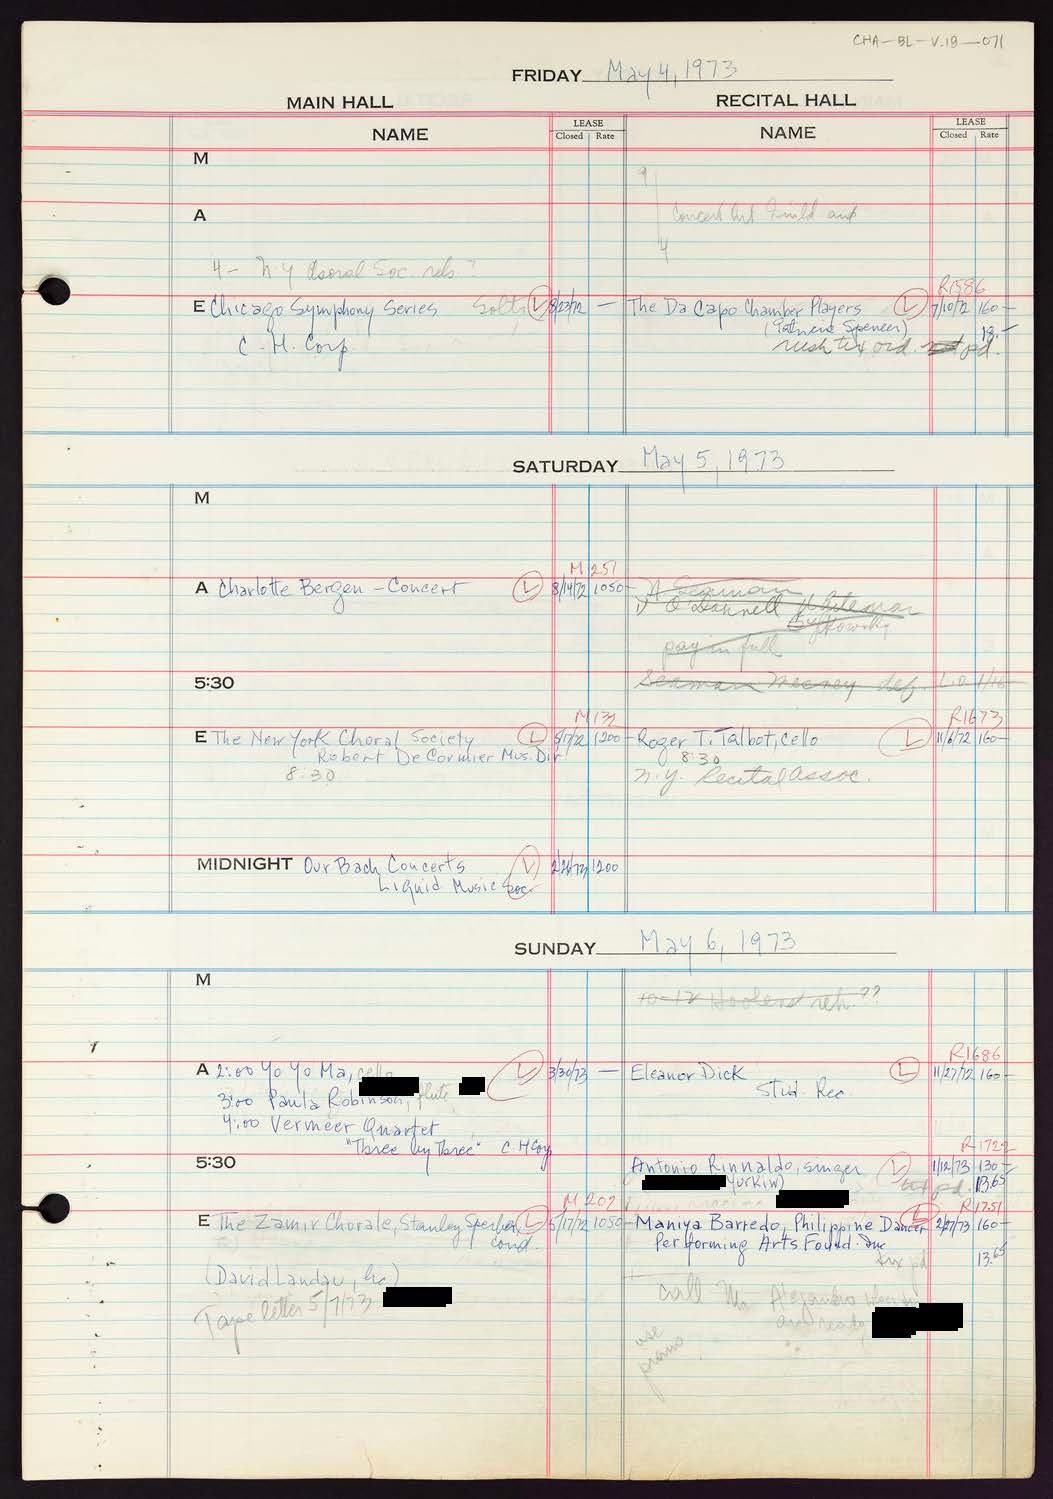 CHA-BL-V.19-071
FRIDAY May 4, 1973
MAIN HALL RECITAL HALL
NAME LEASE Closed Rate NAME LEASE Closed Rate
M
9
A Concert Art Guild aud
4
4 - N.Y Choral Soc. reh ?
R1386
E Chicago Symphony Series Solti L 8/23/72 — The Da Capo Chamber Players L 7/10/72 160—
(Patricia Spencer) 18.—
C. H. Corp. rush tix ord. pd.
SATURDAY May 5, 1973
M
M 251
A Charlotte Bergen - Concert L 8/14/72 1050— Seaman
O'Donnell Whiteman
pay in full
5:30 Seaman def. L.D. 1/16
M 132 R1673
E The New York Choral Society L 5/17/72 1200— Roger T. Talbot, cello L 11/6/72 160—
Robert De Cormier Mus. Dir 8:30
8:30 N.Y. Recital Assoc.
MIDNIGHT Our Bach Concerts L 2/26/73 1200
Liquid Music Soc.
SUNDAY May 6, 1973
M
10-12 reh ??
R1686
A 2:00 Yo Yo Ma, cello L 3/30/73 — Eleanor Dick L 11/27/72 160—
3:00 Paula Robinson, flute Stud. Rec.
4:00 Vermeer Quartet
"Three by Three" C. H Corp
R-1722
5:30 Antonio Rinnaldo, singer L 1/12/73 130—
Yurkiw) tix pd. 13.65
M 202 R 1751
E The Zamir Chorale, Stanley Sperber, L 5/17/72 1050— Maniya Barredo, Philippine Dancer L 2/27/73 160—
cond. Performing Arts Found. Inc
tix pd 13.65
(David Landau, )
Tape letter 5/7/73 call Mr Alejandro
are ready
use
piano